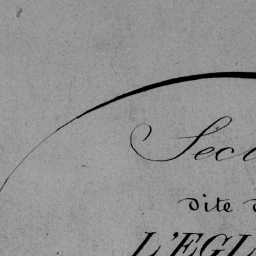 Sec
dite
L'EGL